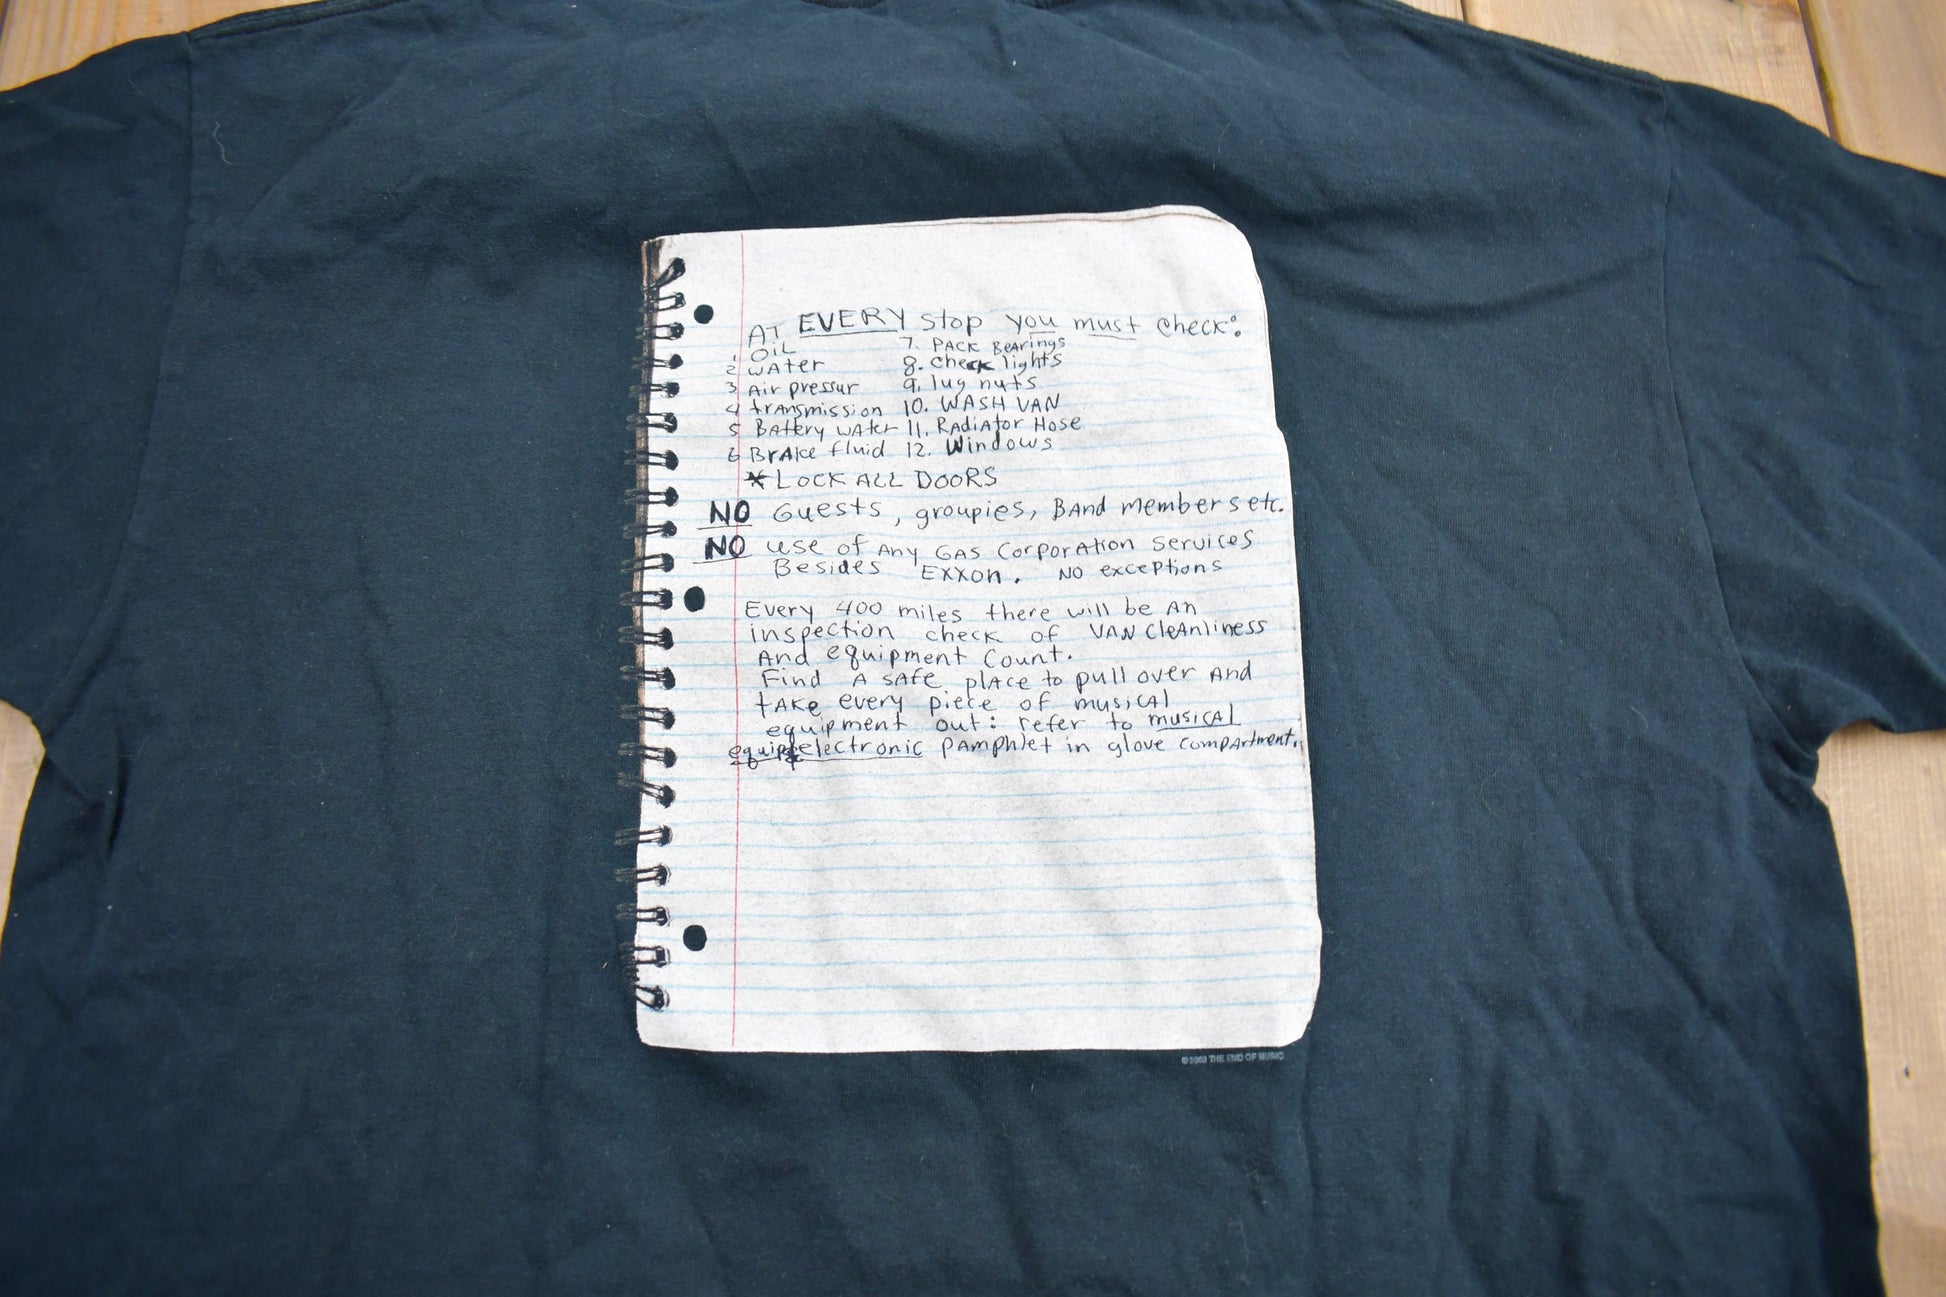 AT EVERY stop you must check:
1 OIL 7. PACK BEArings
2 WAter 8. check lights
3 Air pressur 9. lug nuts
4 trAnsmission 10. WASH VAN
5 BAttery WAter 11. RAdiAtor Hose
6 BrAke fluid 12. Windows
* LOCK ALL DOORS
NO Guests, groupies, BAnd members etc.
NO use of Any GAS CorporAtion Services
Besides EXXon. NO exceptions
Every 400 miles there will be An
inspection check of VAN cleAnliness
And equipment Count.
Find A SAfe plAce to pull over And
tAke every piece of musicAl
equipment out: refer to musicAL
equip&electronic pAmphlet in glove compArtment.
THE END OF MUSIC